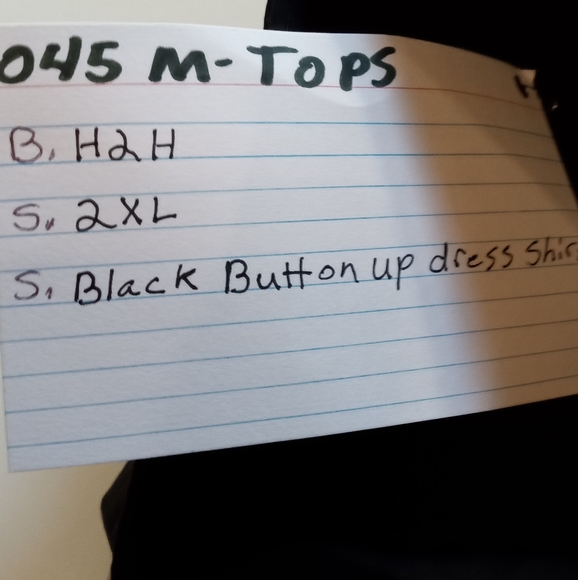 045 M-TOPS
B. H2H
S. 2XL
S. Black Button up dress Shir